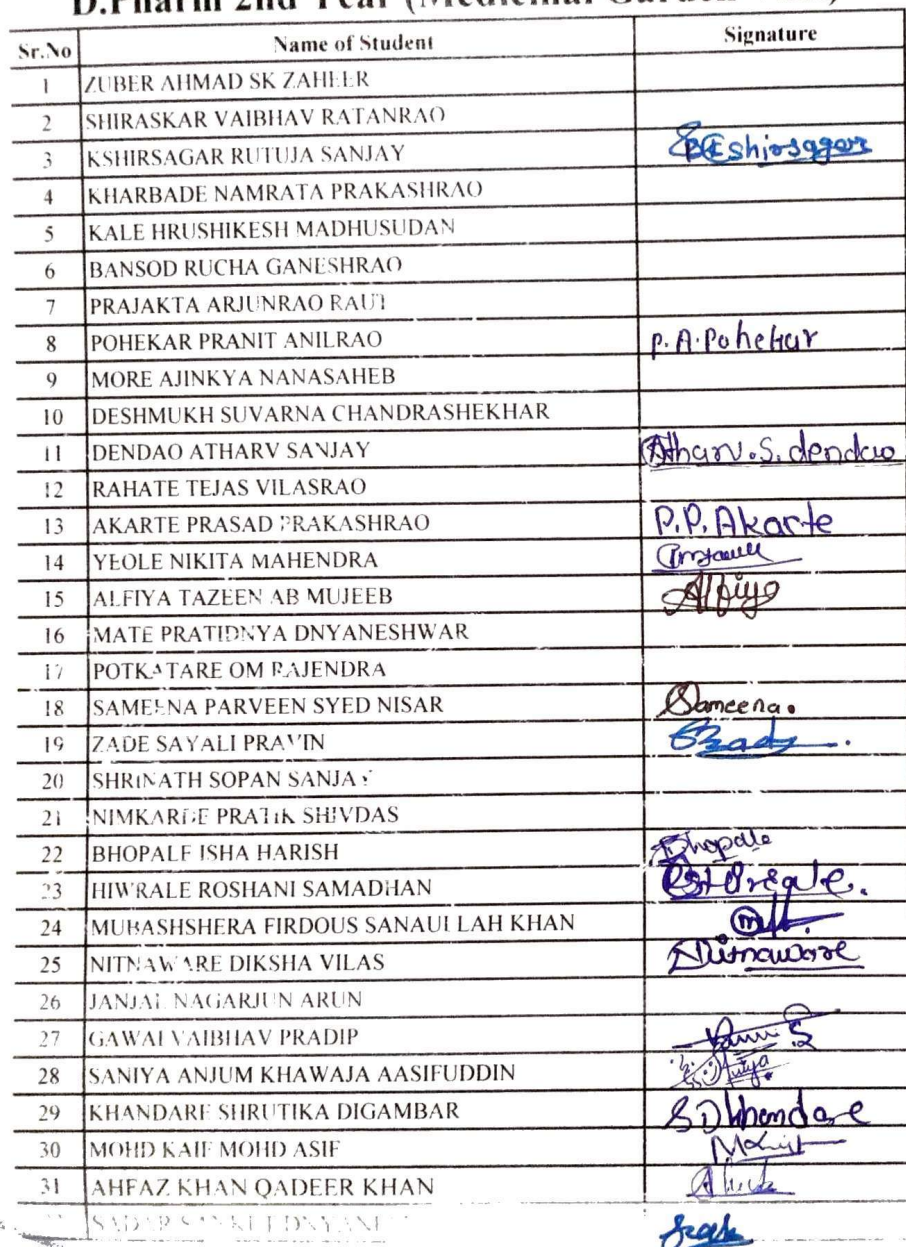 D.Pharm 2nd Year (Medicinal Garden
Sr.No Name of Student Signature
1 ZUBER AHMAD SK ZAHEER
2 SHIRASKAR VAIBHAV RATANRAO
3 KSHIRSAGAR RUTUJA SANJAY
4 KHARBADE NAMRATA PRAKASHRAO
5 KALE HRUSHIKESH MADHUSUDAN
6 BANSOD RUCHA GANESHRAO
7 PRAJAKTA ARJUNRAO RAUT
8 POHEKAR PRANIT ANILRAO P.A.Pohekar
9 MORE AJINKYA NANASAHEB
10 DESHMUKH SUVARNA CHANDRASHEKHAR
11 DENDAO ATHARV SANJAY Atharv.S.dendao
12 RAHATE TEJAS VILASRAO
13 AKARTE PRASAD PRAKASHRAO P.P.Akarte
14 YEOLE NIKITA MAHENDRA
15 ALFIYA TAZEEN AB MUJEEB Alfiya
16 MATE PRATIDNYA DNYANESHWAR
17 POTKATARE OM RAJENDRA
18 SAMEENA PARVEEN SYED NISAR Sameena.
19 ZADE SAYALI PRAVIN
20 SHRINATH SOPAN SANJAY
21 NIMKARDE PRATIK SHIVDAS
22 BHOPALE ISHA HARISH Bhopale
23 HIWRALE ROSHANI SAMADHAN
24 MUBASHSHERA FIRDOUS SANAULLAH KHAN
25 NITNAWARE DIKSHA VILAS Nitnaware
26 JANJAL NAGARJUN ARUN
27 GAWAI VAIBHAV PRADIP
28 SANIYA ANJUM KHAWAJA AASIFUDDIN
29 KHANDARE SHRUTIKA DIGAMBAR S.D khandare
30 MOHD KAIF MOHD ASIF
31 AHFAZ KHAN QADEER KHAN
SADAR SANKET